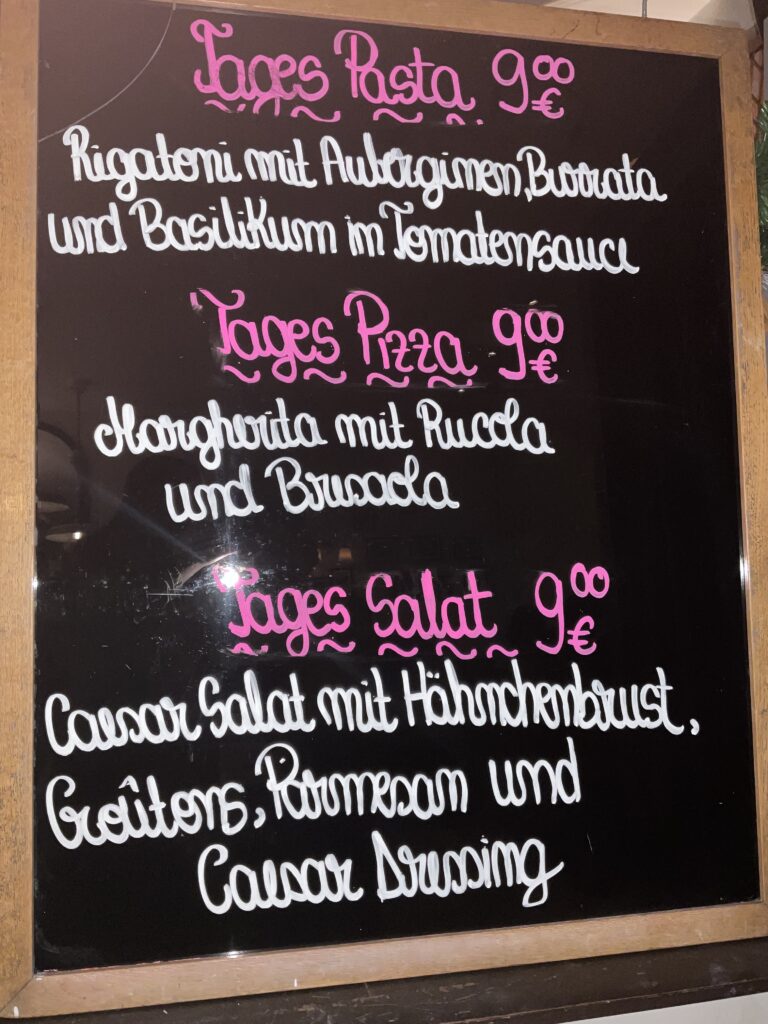 Tages Pasta 9⁰⁰ €
Rigatoni mit Auberginen, Burrata
und Basilikum im Tomatensauce
Tages Pizza 9⁰⁰ €
Margherita mit Rucola
und Bresaola
Tages Salat 9⁰⁰ €
Caesar Salat mit Hähnchenbrust,
Croûtons, Parmesan und
Caesar Dressing